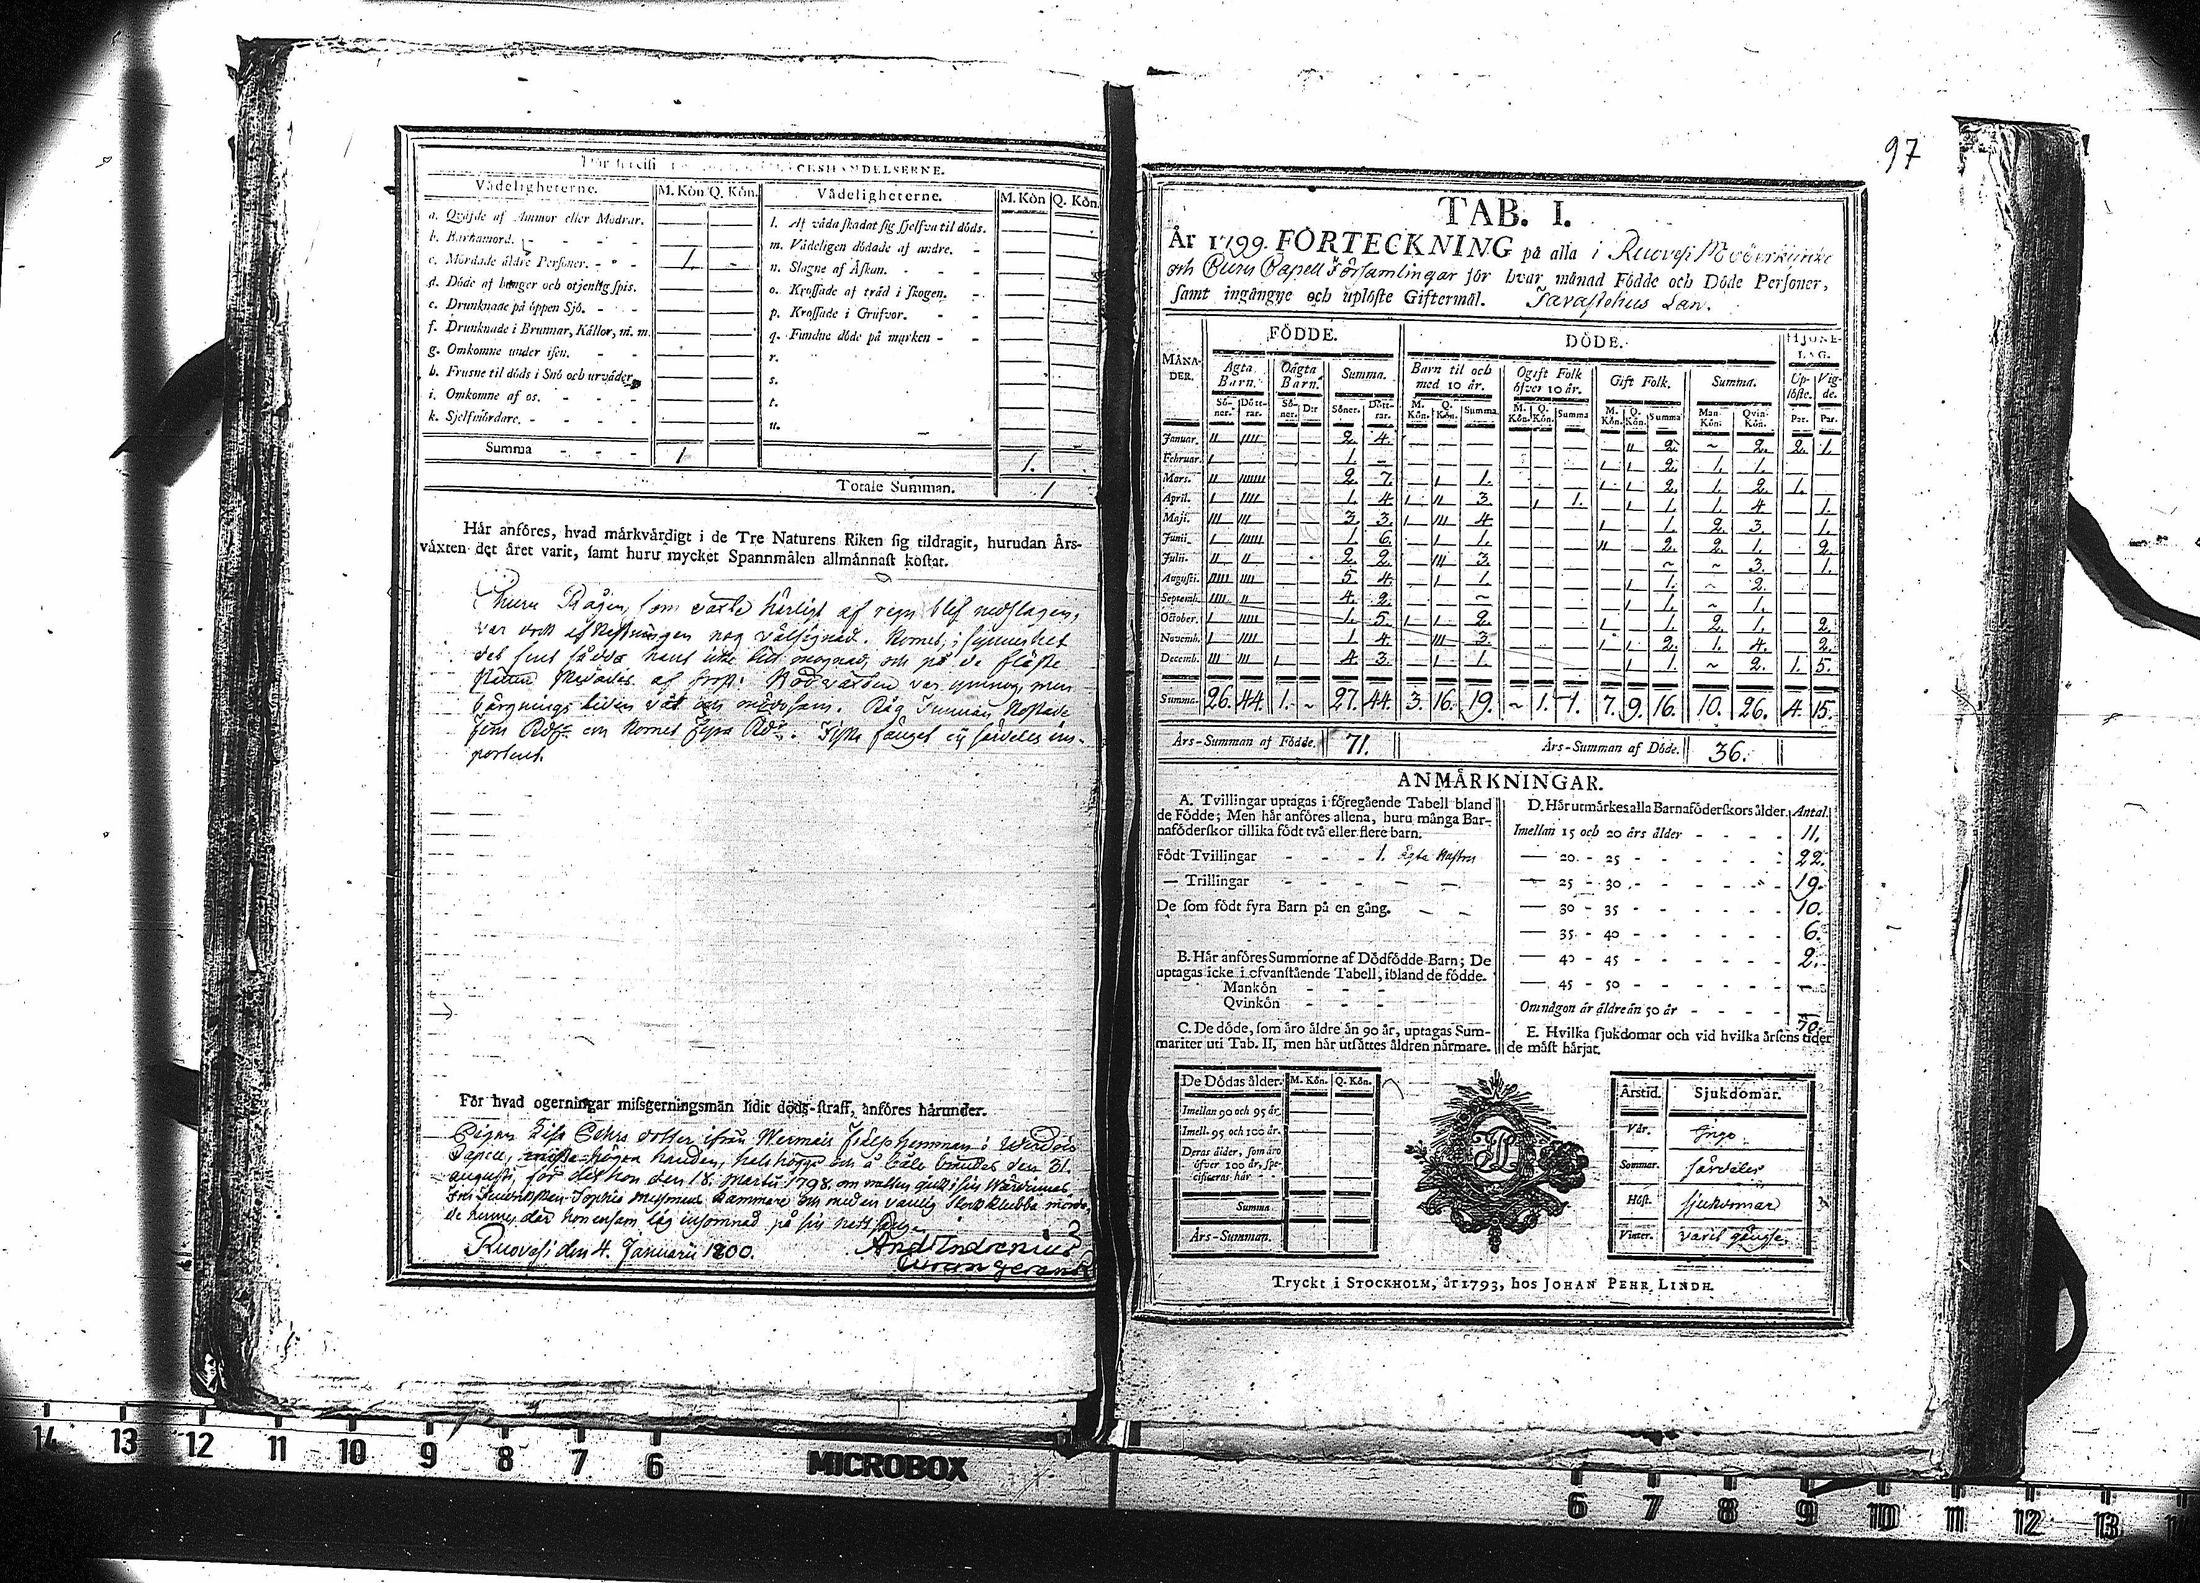 OLYCKESHÄNDELSERNE.
Vådeligheterne. M. Kön Q. Kön. Vådeligheterne. M. Kön Q. Kön.
a. Qväfde af Ammor eller Modrar.
b. Barnamord.
c. Mördade äldre Personer. 1.
d. Döde af hunger och otjenlig spis.
e. Drunknade på öppen Sjö.
f. Drunknade i Brunnar, Källor, m. m.
g. Omkomne under isen.
h. Frusne til döds i Snö och urväder
i. Omkomne af os.
k. Sjelfmördare.
Summa 1
l. Af våda skadat sig sjelfva til döds.
m. Vådeligen dödade af andre.
n. Slagne af Åskan.
o. Krossade af träd i skogen.
p. Krossade i Grufvor.
q. Fundne döde på marken
r.
s.
t.
u.
1.
Totale Summan. 1
Här anföres, hvad märkvärdigt i de Tre Naturens Riken sig tildragit, hurudan Års-
växten det året varit, samt huru mycket Spannmålen allmännast kostat.
huru Rågen, som växte härligt af regn blef nedslagen,
var nog välsignad. Kornet, i synnerhet
det sent sådda hant icke till mognad, och på de fläste
af frost. men
våt och mödosam. Råg Tunnan kostade
fem Rdr. och Kornet fyra Rdr. ej särdeles im-
portent.
För hvad ogerningar missgerningsmän lidit döds-straff, anföres härunder.
Pigan Lisa dotter ifrån hemman i Wirdois
Capell, högra handen, halshöggs och å båle brändes den 31.
augusti, för det hon den 18. Martii 1798. om natten
Sophia Kammare och med en Klubba mörda-
de henne, där hon ensam låg insomnad på sin
Ruovesi den 4. Januarii 1800.
97
TAB. I.
År 1799. FÖRTECKNING på alla i Ruovesi Moderkyrko
och Capell Församlingar för hvar månad Födde och Döde Personer,
samt ingångne och uplöste Giftermål. Tavastehus Län.
MÅNA-DER. FÖDDE. DÖDE. HJONE-LAG.
Ägta Barn. Oägta Barn. Summa. Barn til och med 10 år. Ogift Folk öfver 10 år. Gift Folk. Summa. Up-löste. Vig-de.
Sö-ner. Dött-rar. Sö-ner. D:r Söner. Dött-rar. M. Kön. Q. Kön. Summa M. Kön. Q. Kön. Summa M. Kön. Q. Kön. Summa Man-Kön. Qvin-Kön. Par. Par.
Januar. 2. 4. 2. ~ 2. 2. 1.
Februar. 1. 2. 1. 1.
Mars. 2. 7. 1. 2. 1. 2. 1.
April. 1. 4. 3. 1. 1. 1. 4. 1.
Maji. 3. 3. 4. 1. 2. 3. 1.
Junii 1. 6. 1. 2. 2. 1. 2.
Julii. 2. 2. 3. ~ ~ 3. 1.
Augusti. 5. 4. 1. 1. ~ 2.
Septemb. 4. 2. ~ 1. ~ 1.
October. 1. 5. 2. 1. 2. 1. 2.
Novemb. 1. 4. 3. 2. 1. 4. 2.
Decemb. 4. 3. 1. 1. ~ 2. 1. 5.
Summa. 26. 44. 1. ~ 27. 44. 3. 16. 19. ~ 1. 1. 7. 9. 16. 10. 26. 4. 15.
Års-Summan af Födde. 71. Års-Summan af Döde. 36.
ANMÄRKNINGAR.
A. Tvillingar uptagas i föregående Tabell bland
de Födde; Men här anföres allena, huru många Bar-
naföderskor tillika födt två eller flere barn.
Födt Tvillingar 1. ägta
— Trillingar
De som födt fyra Barn på en gång.
B. Här anföres Summorne af Dödfödde Barn; De
uptagas icke i ofvanstående Tabell, ibland de födde.
Mankön
Qvinkön
C. De döde, som äro äldre än 90 år, uptagas Sum-
mariter uti Tab. II, men här utsättes åldren närmare.
D. Här utmärkes alla Barnaföderskors ålder. Antal.
Imellan 15 och 20 års ålder 11.
— 20 - 25 22.
— 25 - 30 19.
— 30 - 35 10.
— 35 - 40 6.
— 40 - 45 2.
— 45 - 50
Om någon är äldre än 50 år
70.
E. Hvilka sjukdomar och vid hvilka årsens tider
de mäst härjat.
De Dödas ålder. M. Kön. Q. Kön.
Imellan 90 och 95 år.
Imell. 95 och 100 år.
Deras ålder, som äro
öfver 100 år, spe-
cificeras här
Summa
Års-Summan.
Årstid. Sjukdomar.
Vår. Inga
Sommar. särdeles
Höst. sjukdomar
Vinter. varit gängse.
Tryckt i STOCKHOLM, år 1793, hos JOHAN PEHR LINDH.
14 13 12 11 10 9 8 7 6 MICROBOX 6 7 8 9 10 11 12 13